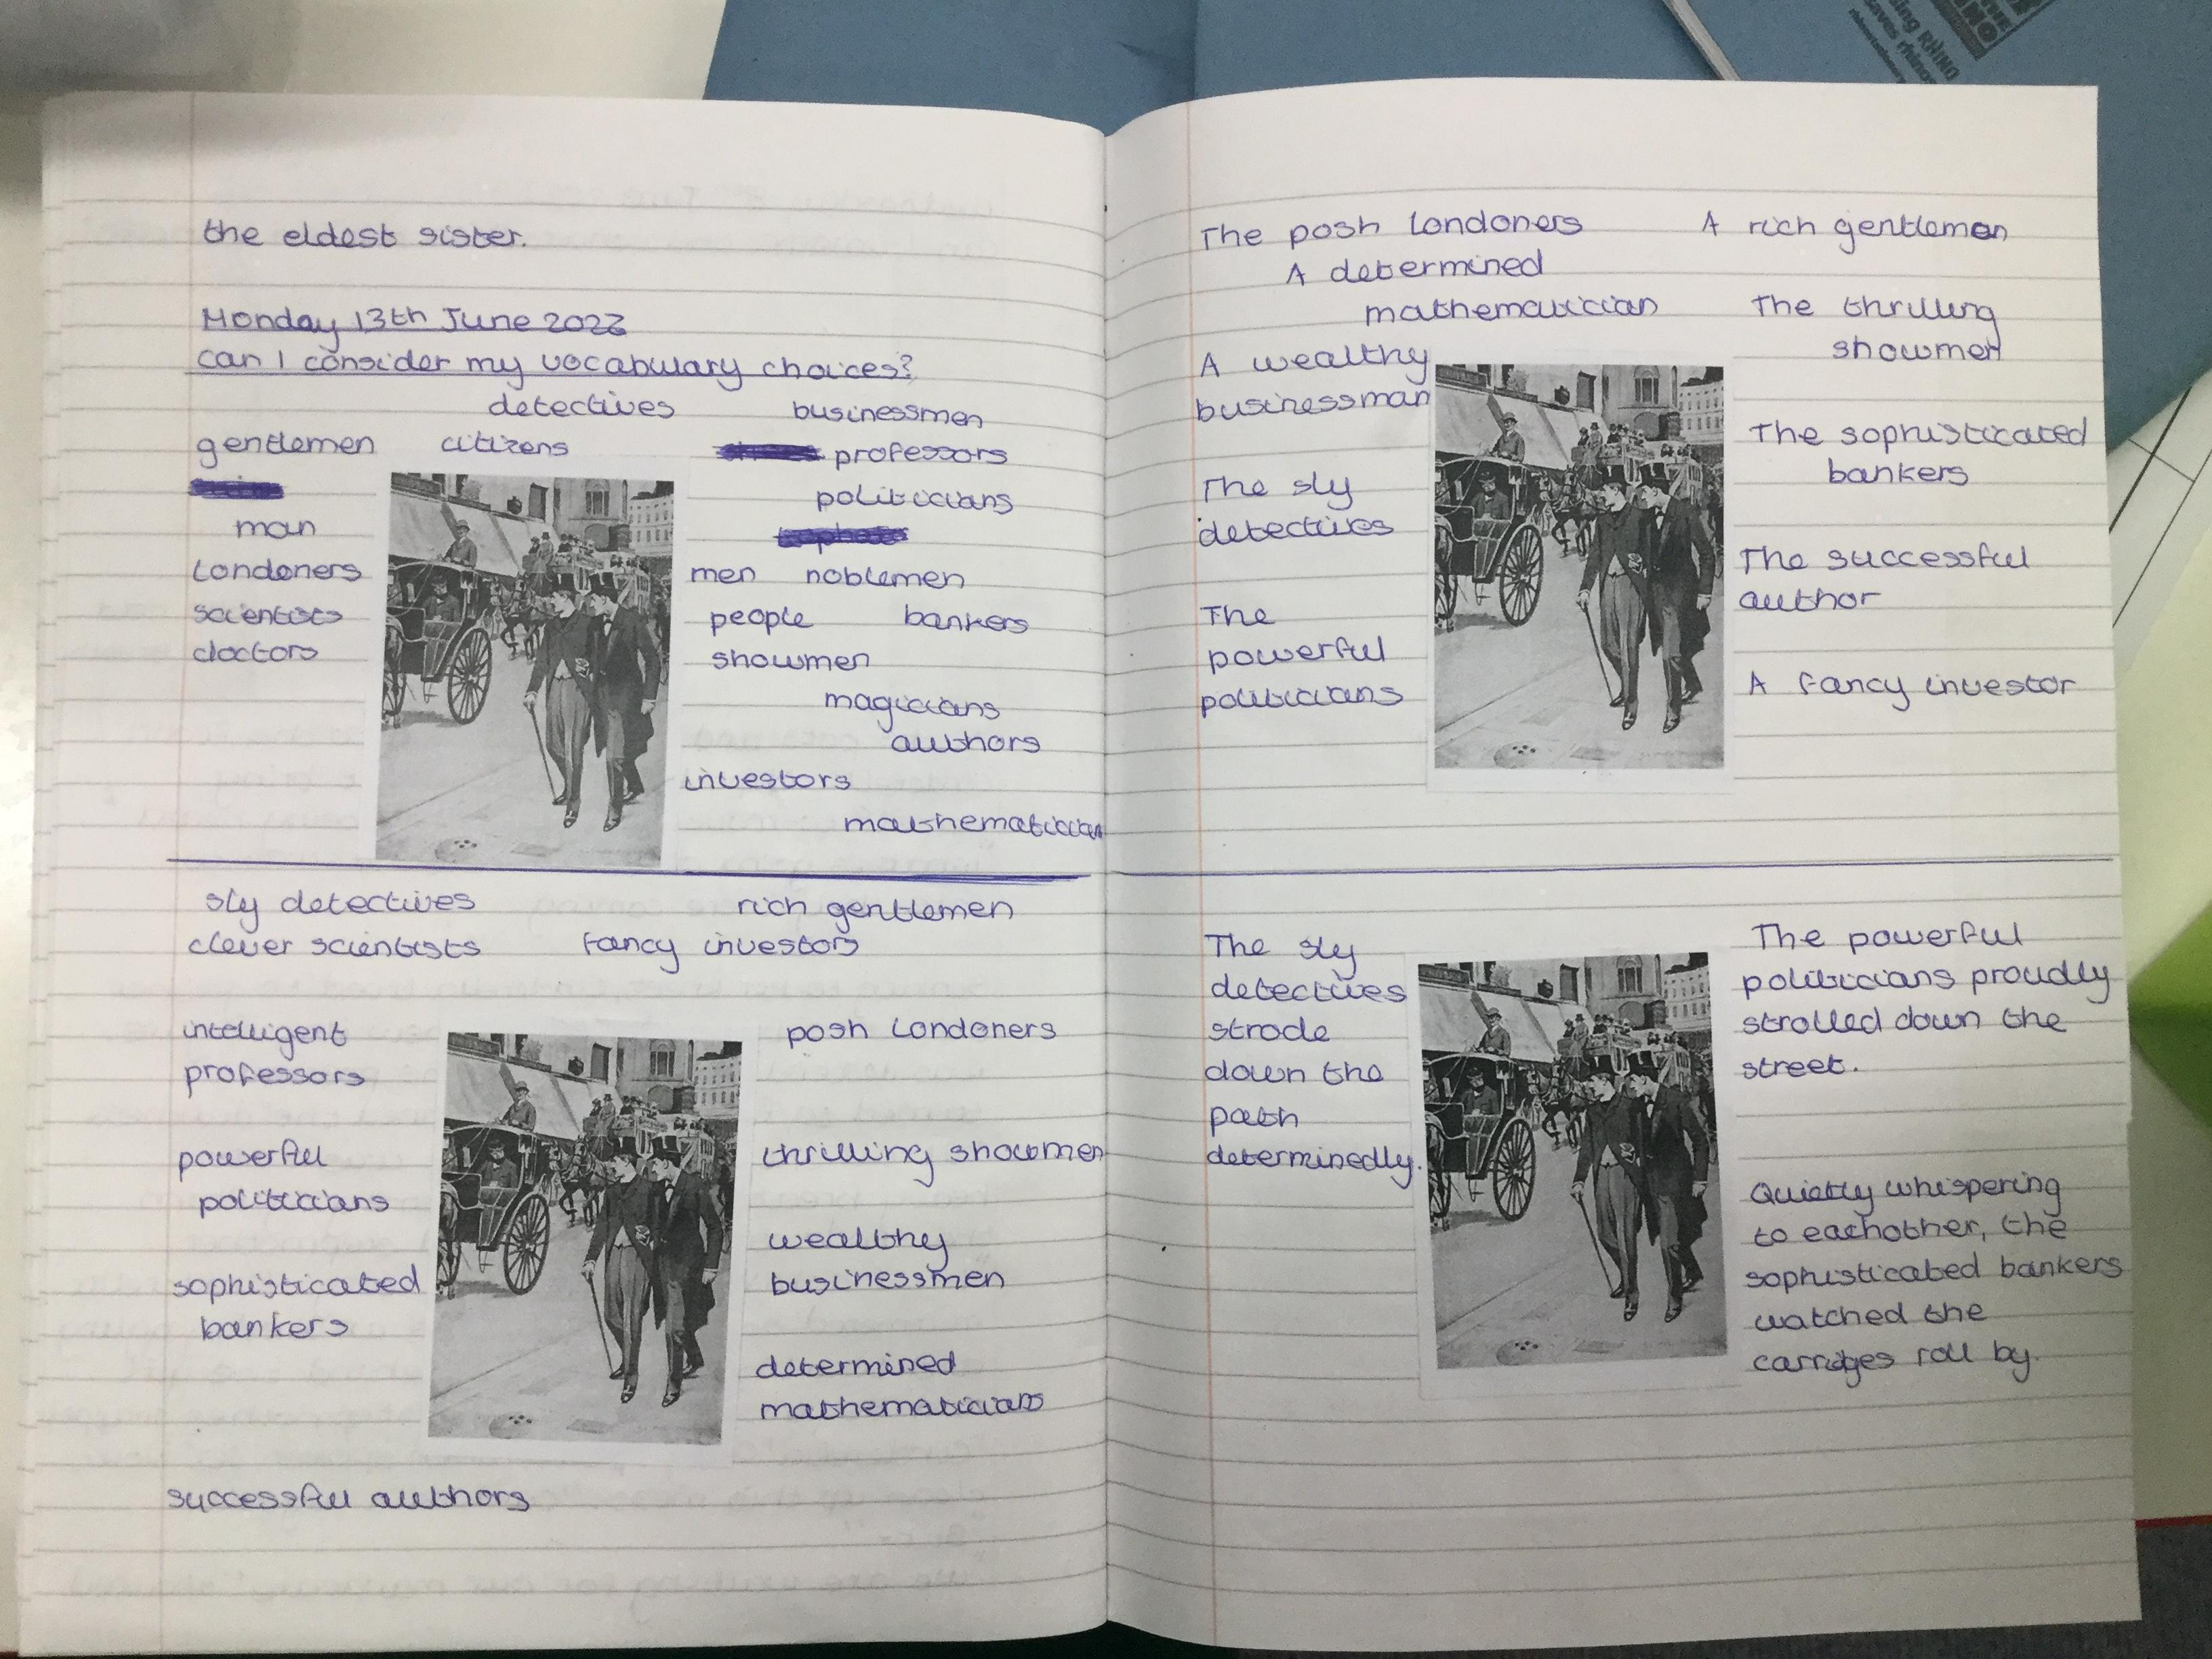 the eldest sister.
Monday 13th June 2022
can I consider my vocabulary choices?
detectives businessmen
gentlemen citizens professors
politicians
man
Londoners
scientists
doctors
men noblemen
people bankers
showmen
magicians
authors
investors
mathematician
sly detectives rich gentlemen
clever scientists fancy investors
intelligent
professors
posh Londoners
powerful
politicians
thrilling showmen
sophisticated
bankers
wealthy
businessmen
determined
mathematicians
successful authors
The posh Londoners A rich gentleman
A determined
mathematician
The thrilling
showmen
A wealthy
businessman
The sophisticated
bankers
The sly
detectives
The successful
author
The
powerful
politicians
A fancy investor
The sly
detectives
strode
down the
path
determinedly.
The powerful
politicians proudly
strolled down the
street.
Quietly whispering
to eachother, the
sophisticated bankers
watched the
carriges roll by.
RHINO